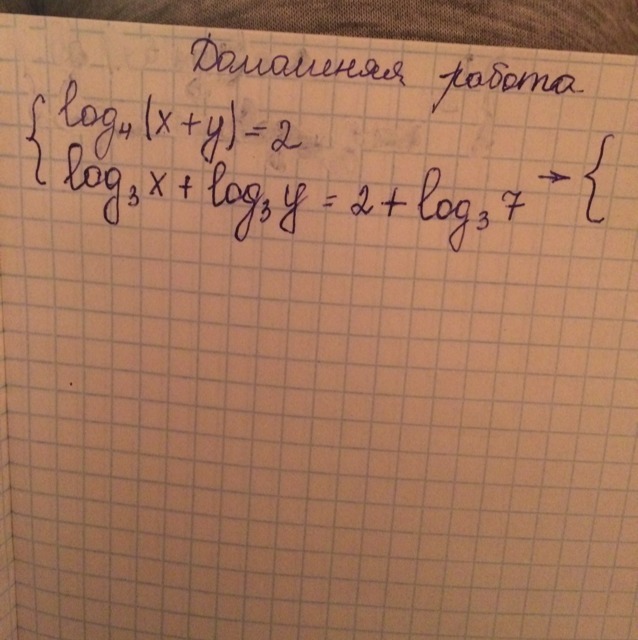 Домашняя работа
{ log₄(x+y)=2
log₃x + log₃y = 2 + log₃7 → {